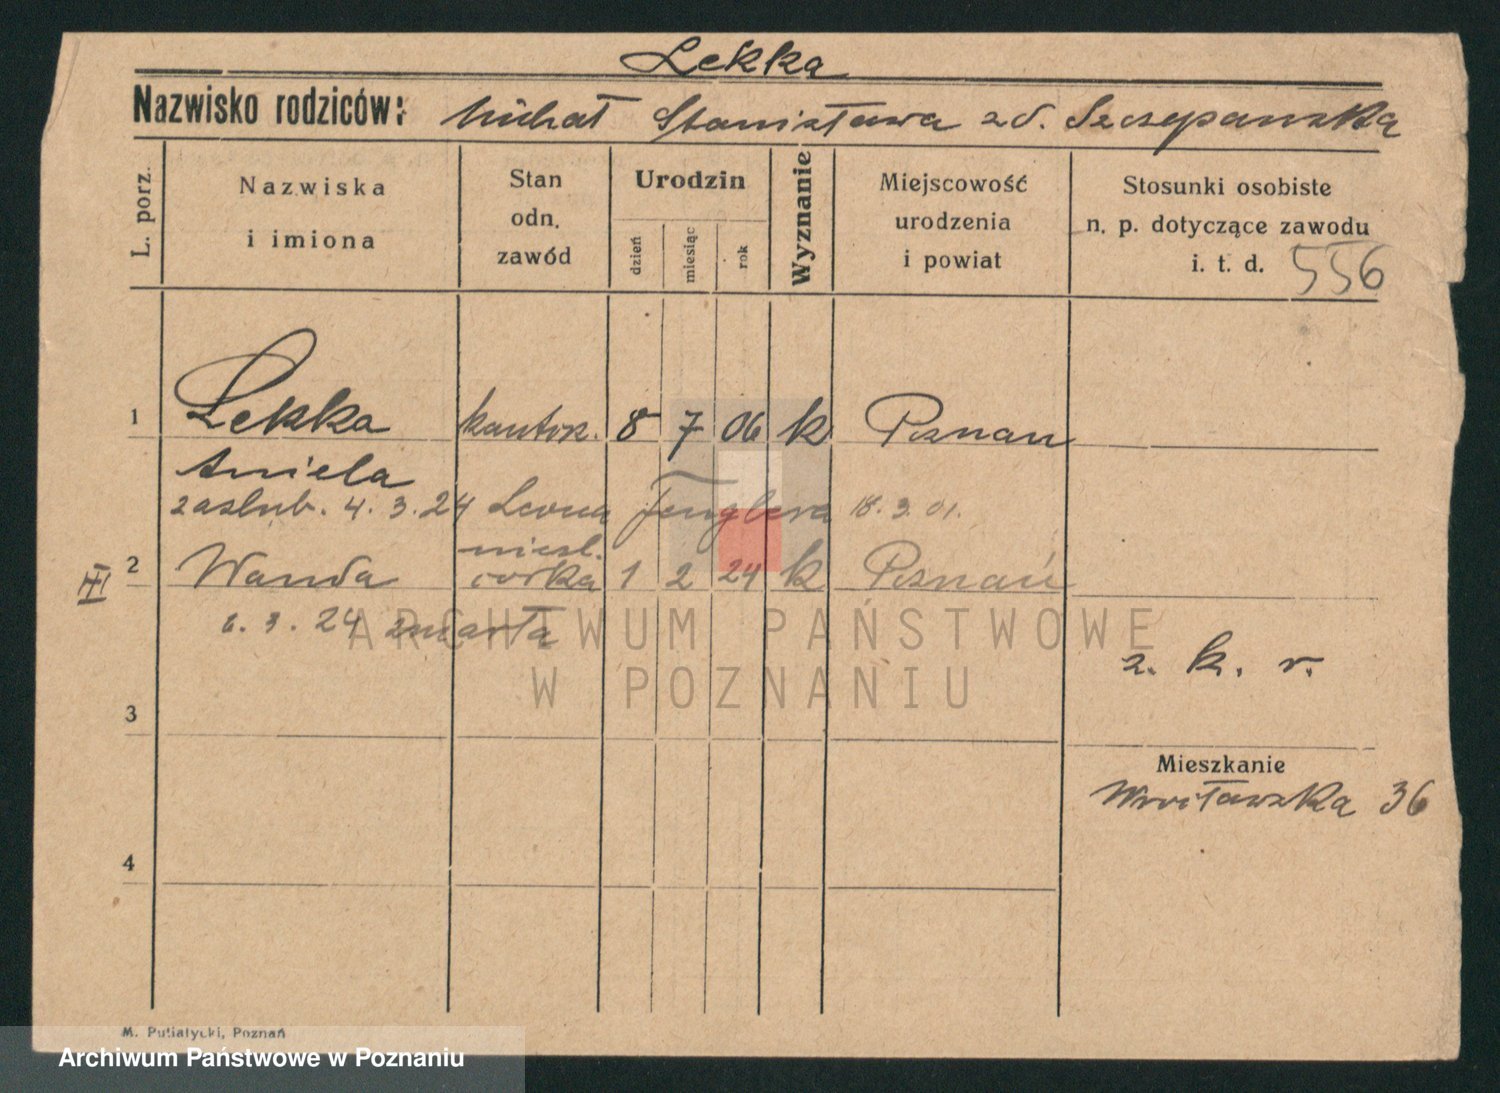 Lekka
Nazwisko rodziców: Michał Stanisława zd. Szczepańska
L. porz.
Nazwiska
i imiona
Stan
odn.
zawód
Urodzin
dzień
miesiąc
rok
Wyznanie
Miejscowość
urodzenia
i powiat
Stosunki osobiste
n. p. dotyczące zawodu
i. t. d. 556
1 Lekka kantorz. 8 7 06 k Poznan
Aniela
zaslub. 4. 3. 24 Leona Fenglera 18. 3. 01.
niesl.
III 2 Wanda corka 1 2 24 k Poznań
6. 3. 24 zmarła
z. k. r.
3
Mieszkanie
Wrocławska 36
4
M. Putiatycki, Poznań
ARCHIWUM PAŃSTWOWE
W POZNANIU
Archiwum Państwowe w Poznaniu